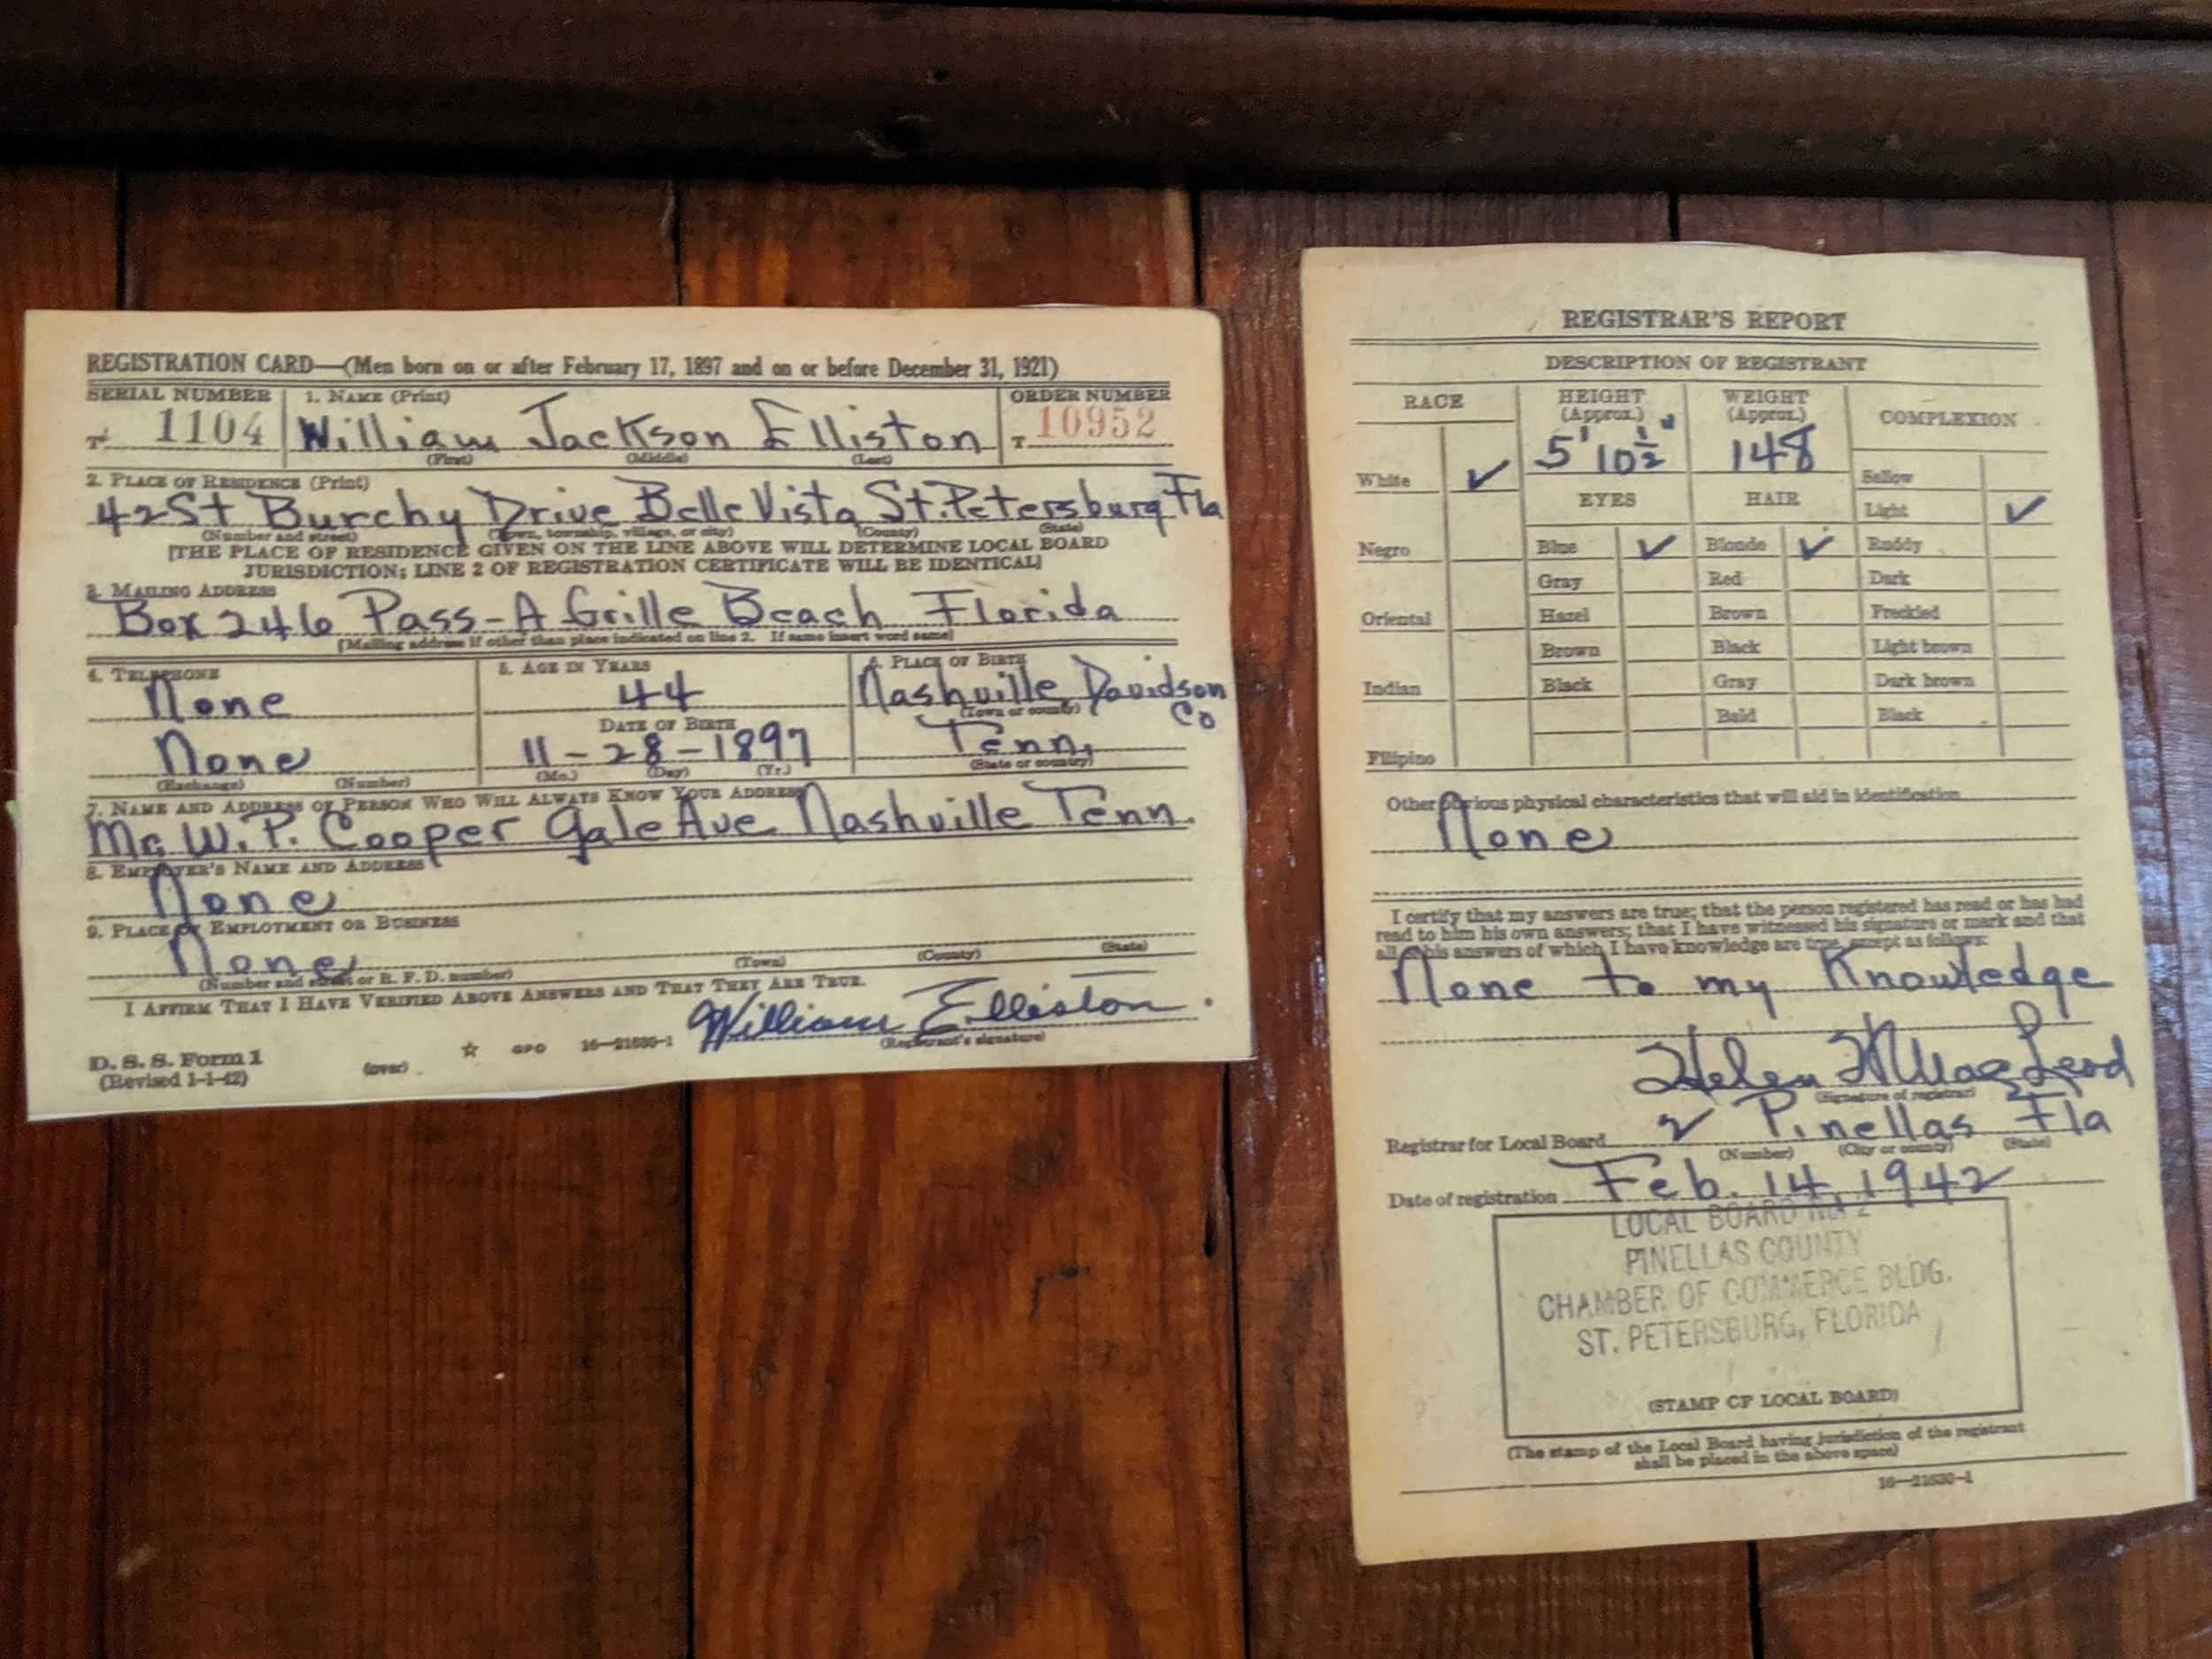 REGISTRATION CARD—(Men born on or after February 17, 1897 and on or before December 31, 1921)
SERIAL NUMBER
1. NAME (Print)
ORDER NUMBER
T 1104
William Jackson Elliston
T 10952
(First) (Middle) (Last)
2. PLACE OF RESIDENCE (Print)
42St Burchy Drive Belle Vista St. Petersburg Fla
(Number and street) (Town, township, village, or city) (County) (State)
[THE PLACE OF RESIDENCE GIVEN ON THE LINE ABOVE WILL DETERMINE LOCAL BOARD
JURISDICTION; LINE 2 OF REGISTRATION CERTIFICATE WILL BE IDENTICAL]
3. MAILING ADDRESS
Box 246 Pass-A Grille Beach Florida
[Mailing address if other than place indicated on line 2. If same insert word same]
4. TELEPHONE
None
None
(Exchange) (Number)
5. AGE IN YEARS
44
DATE OF BIRTH
11-28-1897
(Mo.) (Day) (Yr.)
6. PLACE OF BIRTH
Nashville Davidson
(Town or county) Co
Tenn.
(State or country)
7. NAME AND ADDRESS OF PERSON WHO WILL ALWAYS KNOW YOUR ADDRESS
W. P. Cooper Gale Ave. Nashville Tenn.
8. EMPLOYER'S NAME AND ADDRESS
None
9. PLACE OF EMPLOYMENT OR BUSINESS
None
(Number and street or R. F. D. number) (Town) (County) (State)
I AFFIRM THAT I HAVE VERIFIED ABOVE ANSWERS AND THAT THEY ARE TRUE.
William Elliston.
(Registrant's signature)
D. S. S. Form 1
(Revised 1-1-42)
(over)
☆ GPO 16—21630-1
REGISTRAR'S REPORT
DESCRIPTION OF REGISTRANT
RACE
HEIGHT
(Approx.)
WEIGHT
(Approx.)
COMPLEXION
5' 10½"
148
White ✓
Sallow
EYES
HAIR
Light ✓
Negro
Blue ✓
Blonde ✓
Ruddy
Gray
Red
Dark
Oriental
Hazel
Brown
Freckled
Brown
Black
Light brown
Indian
Black
Gray
Dark brown
Bald
Black
Filipino
Other obvious physical characteristics that will aid in identification
None
I certify that my answers are true; that the person registered has read or has had
read to him his own answers; that I have witnessed his signature or mark and that
all of his answers of which I have knowledge are true, except as follows:
None to my Knowledge
Helen MacLeod
(Signature of registrar)
Registrar for Local Board 2 Pinellas Fla
(Number) (City or county) (State)
Date of registration Feb. 14, 1942
LOCAL BOARD No. 2
PINELLAS COUNTY
CHAMBER OF COMMERCE BLDG.
ST. PETERSBURG, FLORIDA
(STAMP OF LOCAL BOARD)
(The stamp of the Local Board having jurisdiction of the registrant
shall be placed in the above space)
16—21630-1